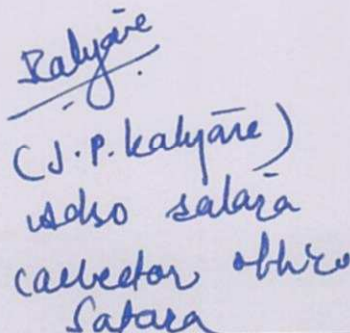 Kalyāne
(J.P. Kalyāne)
Adso satara
collector office
Satara